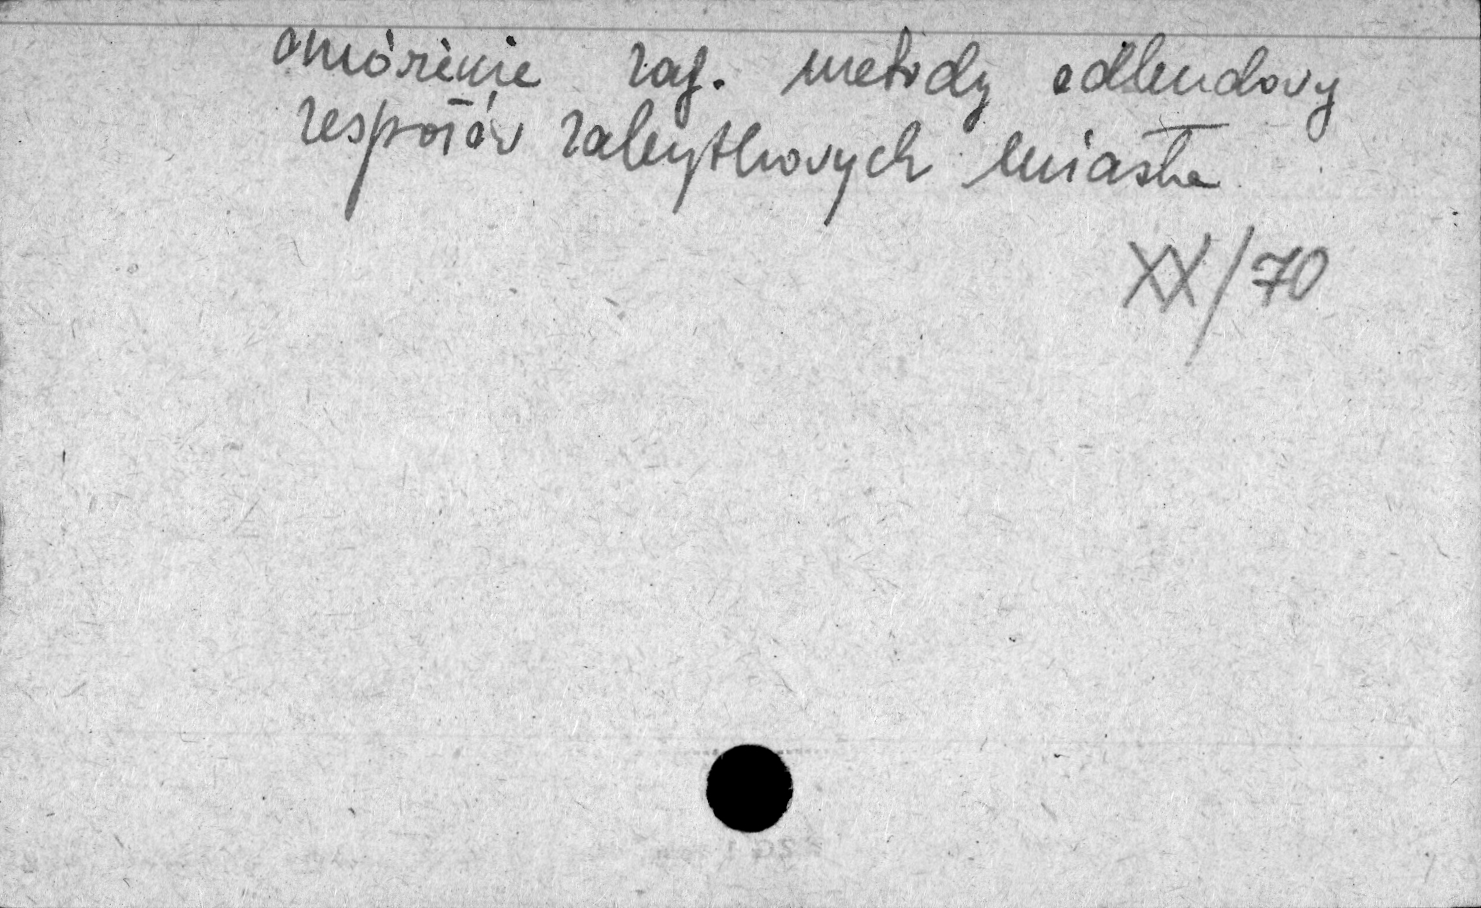 omówienie zag. metody odbudowy
zespołów zabytkowych miasta
XX/70